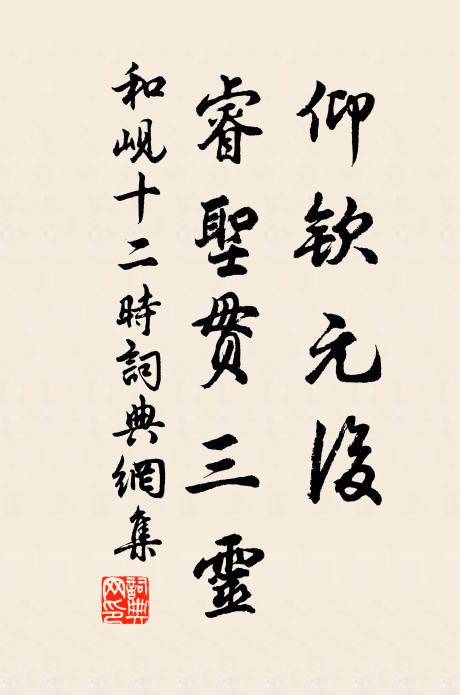 仰欽元後
睿聖貫三靈
和峴十二時詞典網集
詞典
网印